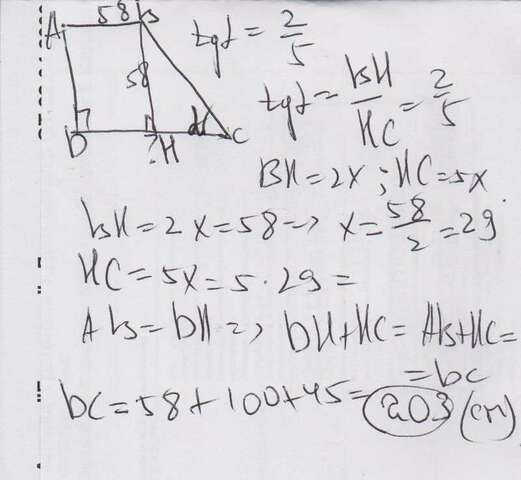 A 58 B
58
D ? H α C
tgα = 2/5
tgα = BH/HC = 2/5
BH = 2x ; HC = 5x
BH = 2x = 58 => x = 58/2 = 29
HC = 5x = 5 · 29 =
AB = DH => DH + HC = AB + HC =
= DC
DC = 58 + 100 + 45 = 203 (cm)